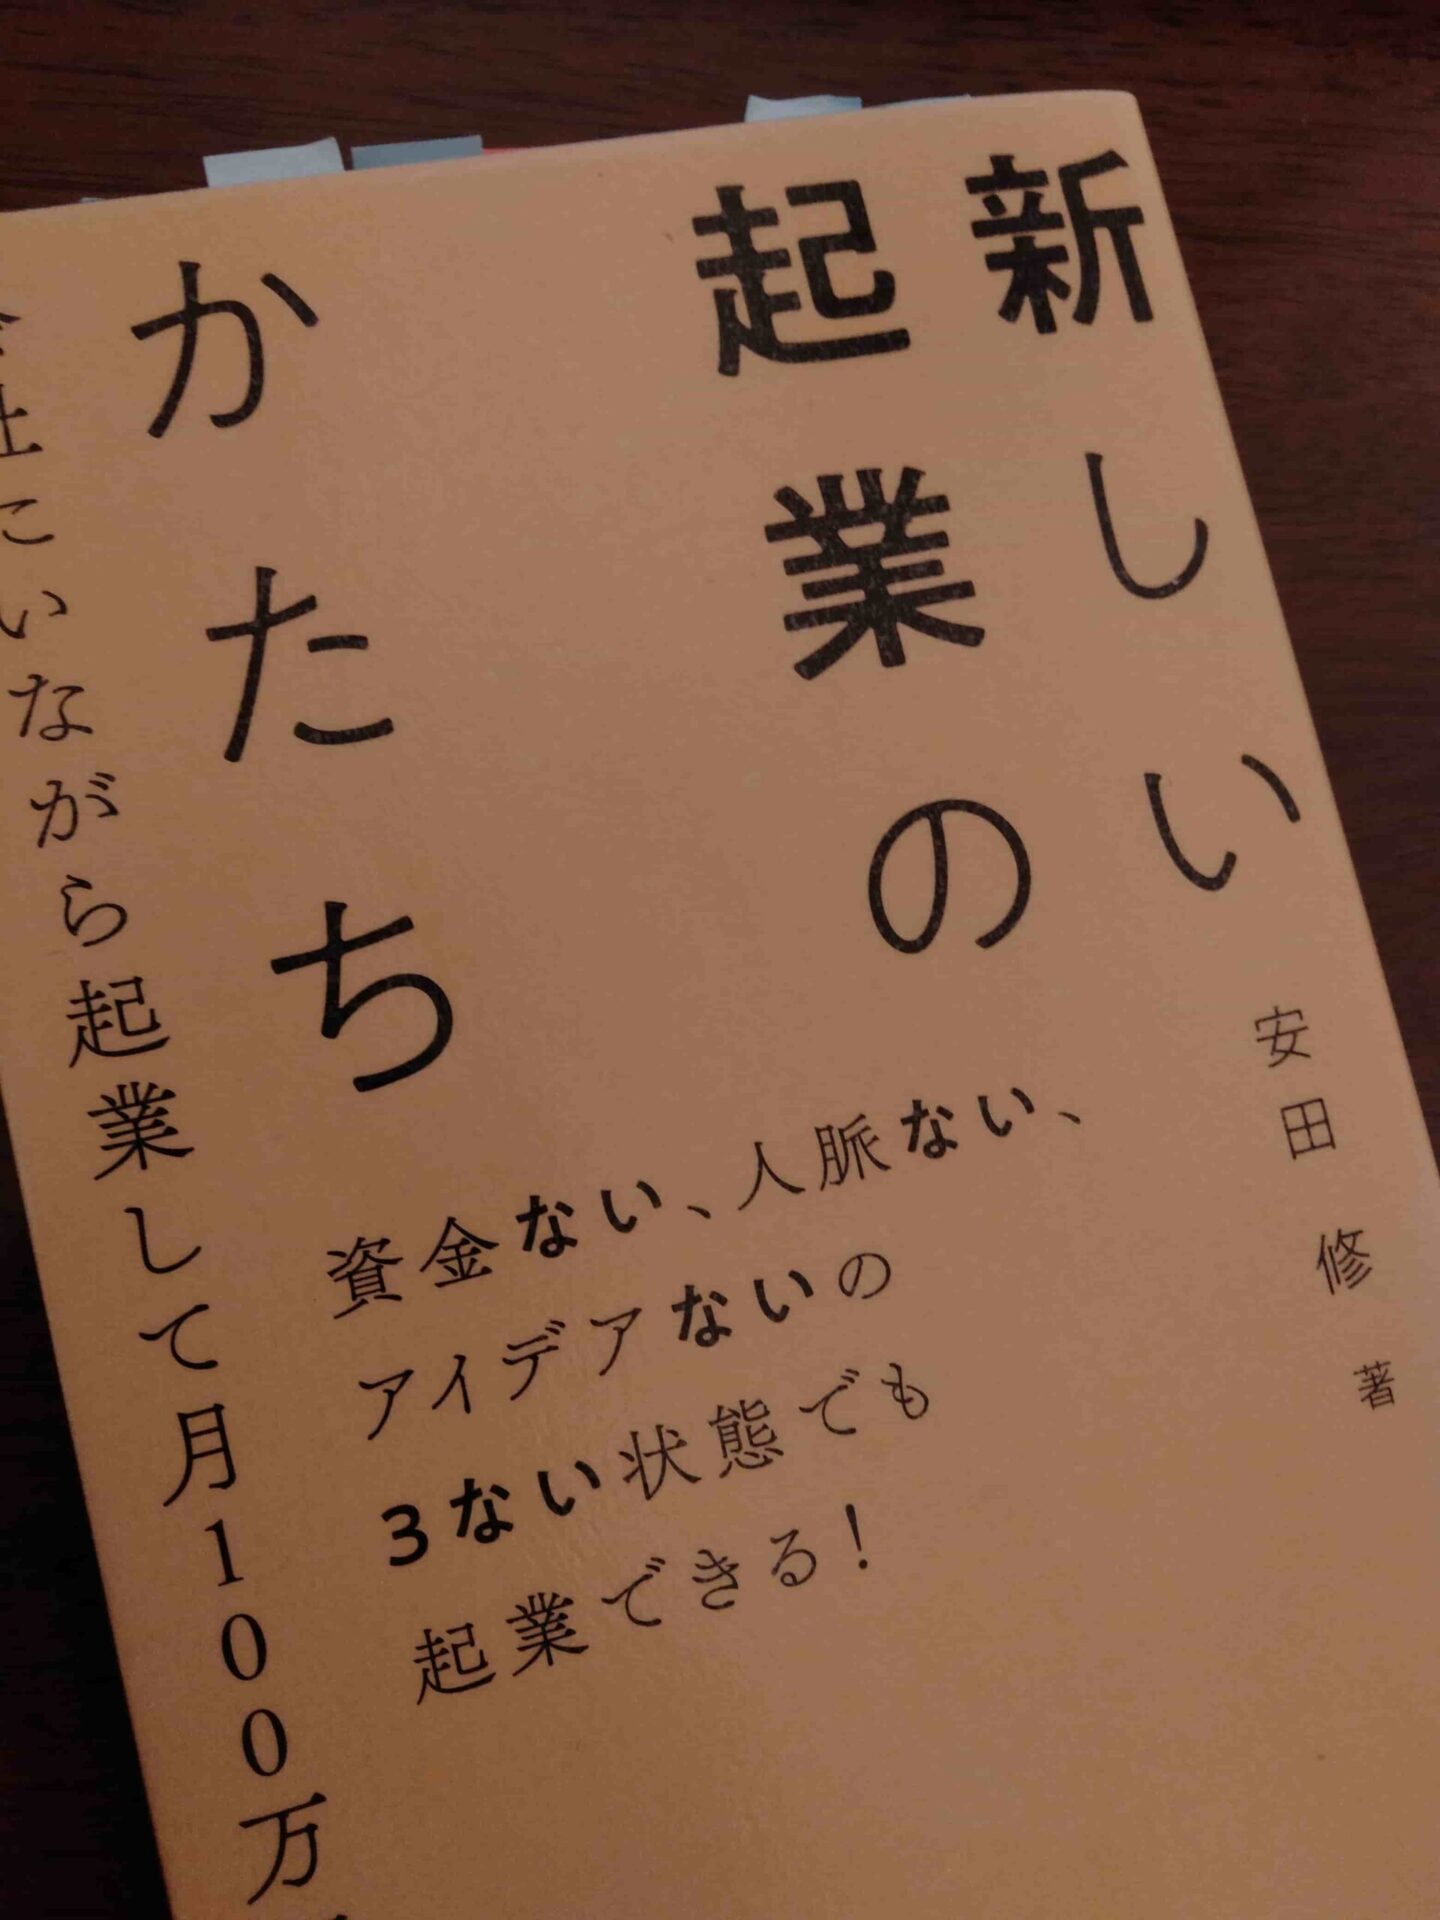 新しい
起業の
かたち
安田 修 著
資金ない、人脈ない、
アイデアないの
3ない状態でも
起業できる!
いながら起業して月100万